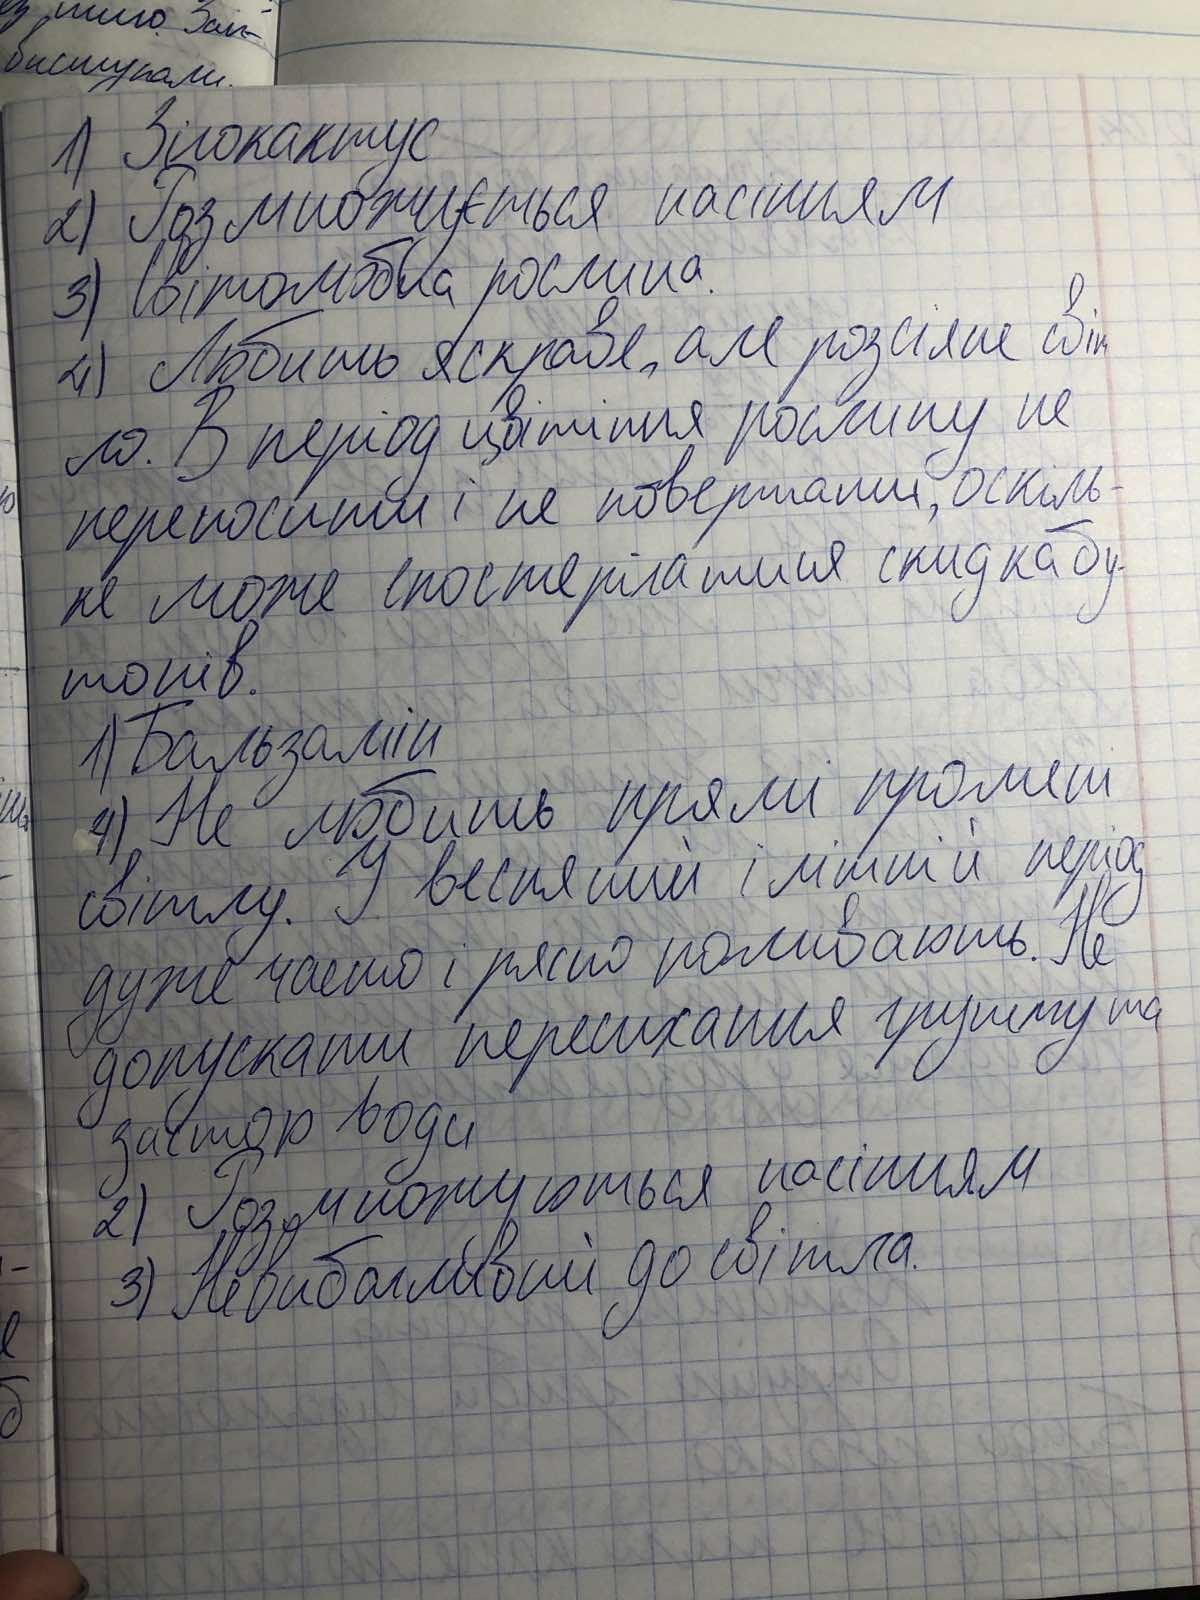 тило. Зап-
виступали.
1) Зігокактус
2) Розмножується насінням
3) Світолюбна рослина.
4) Любить яскраве, але розсіяне світ
ло. В період цвітіння рослину не
переносити і не повертати, оскіль-
ке може спостерігатися скидка бу-
тонів.
1) Бальзамін
4) Не любить прямі промені
світлу. У весняний і літній період
дуже часто і рясно поливають. Не
допускати пересихання грунту та
застор води
2) Розмножуються насінням
3) Невибагливий до світла.